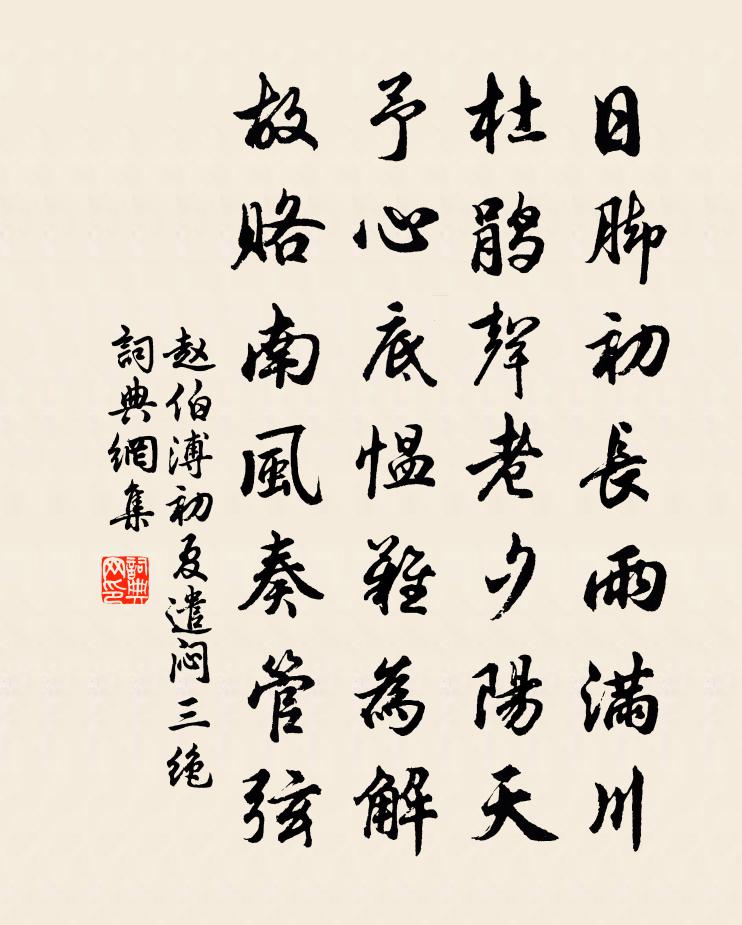 日脚初長雨滿川
杜鵑聲老夕陽天
予心底愠難為解
故賂南風奏管弦
赵伯溥初夏遣闷三绝
詞典網集
詞典网印